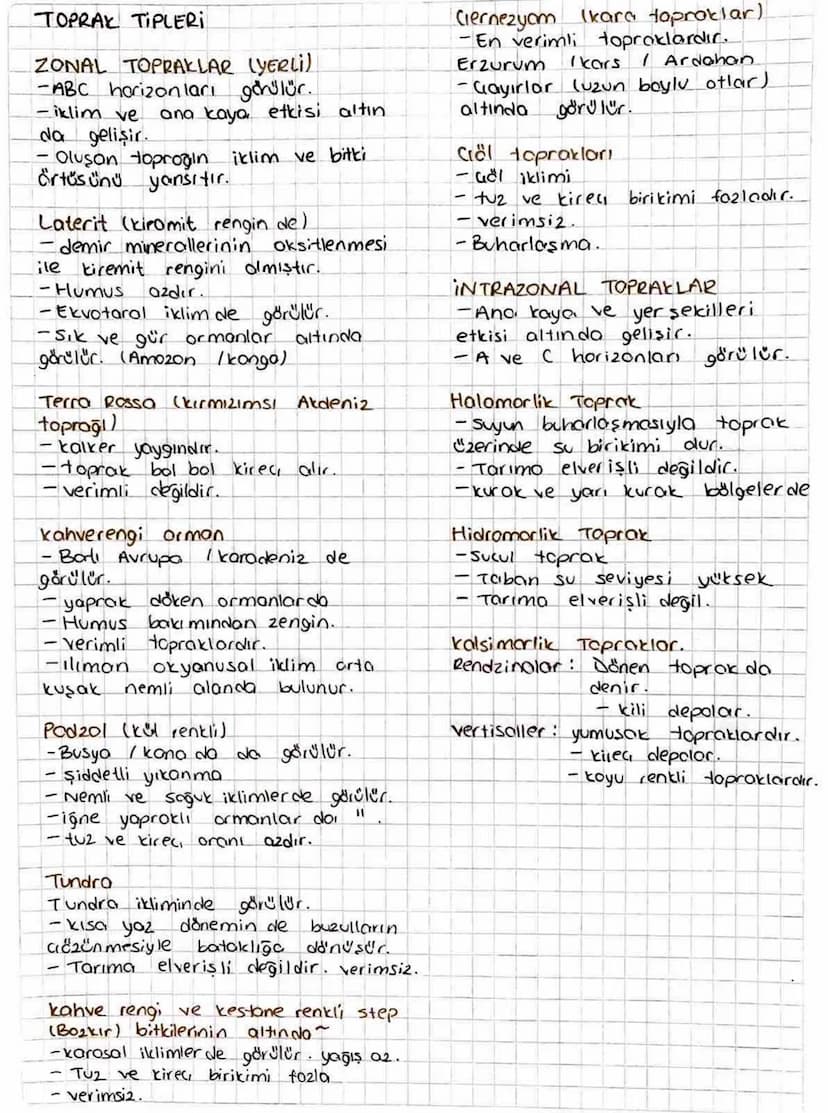 TOPRAK TİPLERİ
ZONAL TOPRAKLAR (YERLİ)
-ABC horizonları görülür.
-iklim ve ana kaya etkisi altın
da gelişir.
- Oluşan toprağın iklim ve bitki
örtüsünü yansıtır.
Laterit (kiromit rengin de)
- demir minerallerinin oksitlenmesi
ile kiremit rengini almıştır.
-Humus azdır.
- Ekvatoral iklim de görülür.
-Sık ve gür ormanlar altında
görülür. (Amozon / kongo)
Terra Rossa (kırmızımsı Akdeniz
toprağı)
- kalker yaygındır.
- toprak bol bol kireç alır.
- verimli değildir.
kahverengi orman
- Batı Avrupa / karadeniz de
görülür.
- yaprak döken ormanlarda
- Humus bakımından zengin.
- verimli topraklardır.
-ılıman okyanusal iklim orta
kuşak nemli alanda bulunur.
Podzol (kül renkli)
-Busya / kana da da görülür.
- şiddetli yıkanma
- Nemli ve soğuk iklimlerde görülür.
-iğne yapraklı ormanlar da ".
- tuz ve kireç oranı azdır.
Tundra
Tundra ikliminde görülür.
- kısa yaz dönemin de buzulların
çözünmesiyle bataklığa dönüşür.
- Tarıma elverişli değildir. verimsiz.
kahve rengi ve kestane renkli step
(Bozkır) bitkilerinin altında ~
-karasal iklimlerde görülür. yağış az.
- Tuz ve kireç birikimi fazla
- verimsiz.
Çernezyom (kara topraklar)
-En verimli topraklardır.
Erzurum / kars / Ardahan
- Çayırlar (uzun boylu otlar)
altında görülür.
Çöl toprakları
- çöl iklimi
- tuz ve kireç birikimi fazladır.
- verimsiz.
- Buharlaşma.
İNTRAZONAL TOPRAKLAR
-Ana kaya ve yer şekilleri
etkisi altında gelişir.
- A ve C horizonları görülür.
Halomorlik Toprak
-suyun buharlaşmasıyla toprak
üzerinde su birikimi olur.
- Tarıma elverişli değildir.
-kurak ve yarı kurak bölgelerde
Hidromorlik Toprak
-sucul toprak
- Taban su seviyesi yüksek
- Tarıma elverişli değil.
kalsimorlik Topraklar.
Rendzinalar : Dönen toprak da
denir.
- kili depolar.
vertisoller : yumuşak topraklardır.
- kireç depolar.
- koyu renkli topraklardır.